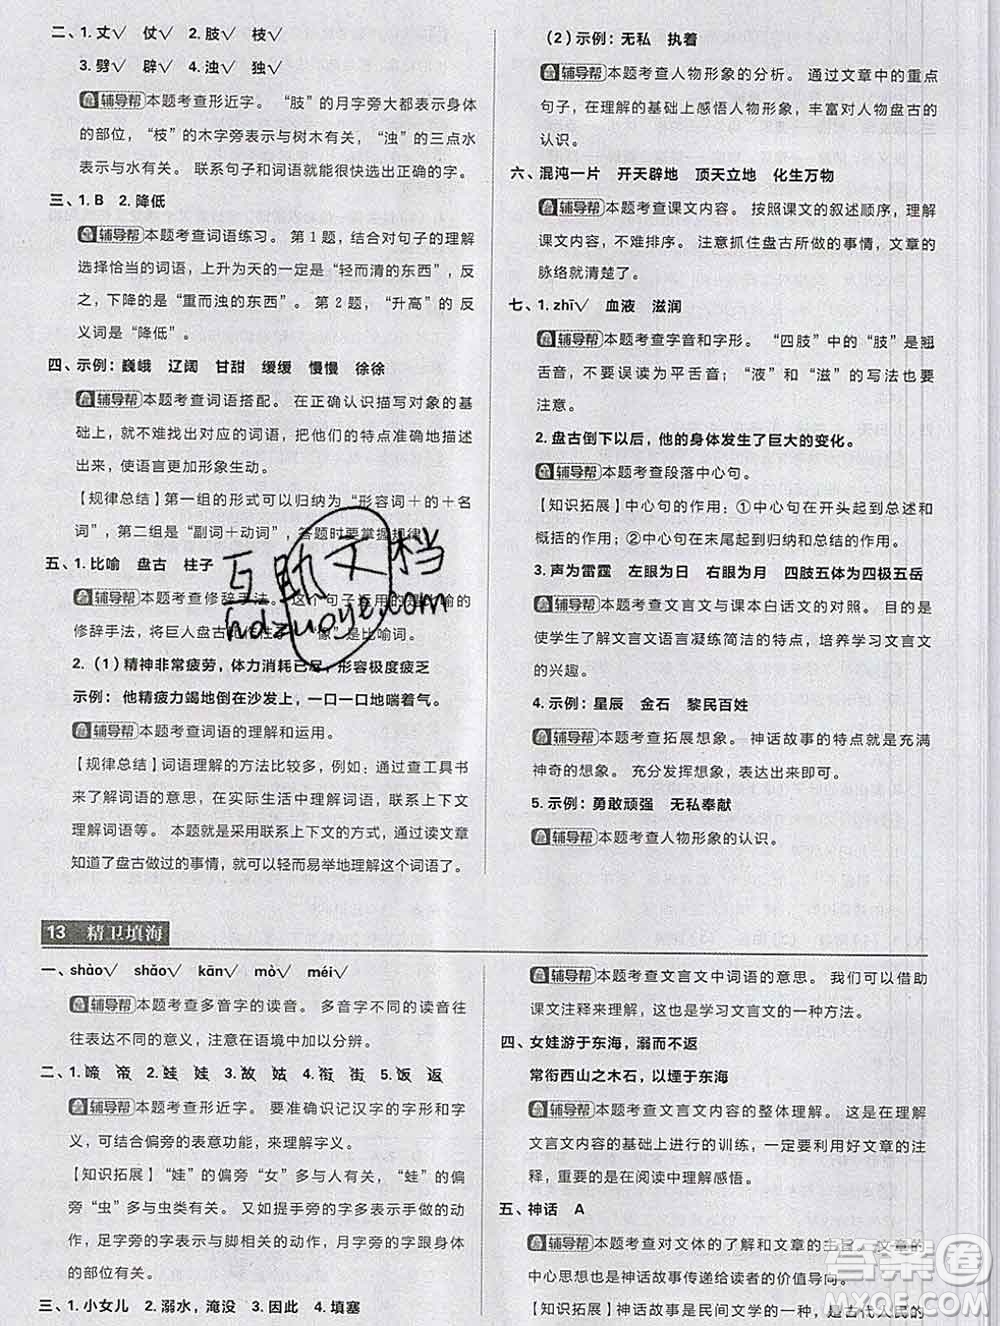 二、1. 丈√ 仗√ 2. 肢√ 枝√
3. 劈√ 辟√ 4. 浊√ 独√
辅导帮 本题考查形近字。“肢”的月字旁大都表示身体
的部位，“枝”的木字旁表示与树木有关，“浊”的三点水
表示与水有关。联系句子和词语就能很快选出正确的字。
三、1. B 2. 降低
辅导帮 本题考查词语练习。第1题，结合对句子的理解
选择恰当的词语，上升为天的一定是“轻而清的东西”，反
之，下降的是“重而浊的东西”。第2题，“升高”的反
义词是“降低”。
四、示例：巍峨 辽阔 甘甜 缓缓 慢慢 徐徐
辅导帮 本题考查词语搭配。在正确认识描写对象的基
础上，就不难找出对应的词语，把他们的特点准确地描述
出来，使语言更加形象生动。
【规律总结】第一组的形式可以归纳为“形容词＋的＋名
词”，第二组是“副词＋动词”，答题时要掌握规律
五、1. 比喻 盘古 柱子
辅导帮 本题考查修辞手法。这个句子运用的是比喻的
修辞手法，将巨人盘古比作柱子，“像”是比喻词。
2.（1）精神非常疲劳，体力消耗已尽，形容极度疲乏
示例：他精疲力竭地倒在沙发上，一口一口地喘着气。
辅导帮 本题考查词语的理解和运用。
【规律总结】词语理解的方法比较多，例如：通过查工具书
来了解词语的意思，在实际生活中理解词语，联系上下文
理解词语等。本题就是采用联系上下文的方式，通过读文章
知道了盘古做过的事情，就可以轻而易举地理解这个词语了。
（2）示例：无私 执着
辅导帮 本题考查人物形象的分析。通过文章中的重点
句子，在理解的基础上感悟人物形象，丰富对人物盘古的
认识。
六、混沌一片 开天辟地 顶天立地 化生万物
辅导帮 本题考查课文内容。按照课文的叙述顺序，理解
课文内容，不难排序。注意抓住盘古所做的事情，文章的
脉络就清楚了。
七、1. zhī√ 血液 滋润
辅导帮 本题考查字音和字形。“四肢”中的“肢”是翘
舌音，不要误读为平舌音；“液”和“滋”的写法也要
注意。
2. 盘古倒下以后，他的身体发生了巨大的变化。
辅导帮 本题考查段落中心句。
【知识拓展】中心句的作用：①中心句在开头起到总述和
概括的作用；②中心句在末尾起到归纳和总结的作用。
3. 声为雷霆 左眼为日 右眼为月 四肢五体为四极五岳
辅导帮 本题考查文言文与课本白话文的对照。目的是
使学生了解文言文语言凝练简洁的特点，培养学习文言文
的兴趣。
4. 示例：星辰 金石 黎民百姓
辅导帮 本题考查拓展想象。神话故事的特点就是充满
神奇的想象。充分发挥想象，表达出来即可。
5. 示例：勇敢顽强 无私奉献
辅导帮 本题考查人物形象的认识。
13 精卫填海
一、shào√ shǎo√ kān√ mò√ méi√
辅导帮 本题考查多音字的读音。多音字不同的读音往
往代表达不同的意义，注意在语境中加以分辨。
二、1. 啼 帝 2. 蛙 娃 3. 故 姑 4. 衔 街 5. 饭 返
辅导帮 本题考查形近字。要准确识记汉字的字形和字
义，可结合偏旁的表意功能，来理解字义。
【知识拓展】“娃”的偏旁“女”多与人有关，“蛙”的偏
旁“虫”多与虫类有关。又如提手旁的字多表示手做的动
作，足字旁的字多表示与脚相关的动作，月字旁的字跟身
体的部位有关
三、1. 小女儿 2. 溺水，淹没 3. 因此 4. 填塞
辅导帮 本题考查文言文中词语的意思。我们可以借助
课文注释来理解，这也是学习文言文的一种方法。
四、女娃游于东海，溺而不返
常衔西山之木石，以堙于东海
辅导帮 本题考查文言文内容的整体理解。这是在理解
文言文内容的基础上进行的训练，一定要利用好文章的注
释，重要的是在阅读中理解感悟。
五、神话 A
辅导帮 本题考查对文体的了解和文章的主旨。文章的
中心思想也是神话故事传递给读者的价值导向。
【知识拓展】神话故事是民间文学的一种，是古代人民的
互助文档
hdzuoye.com
答案圈
MXQE.COM